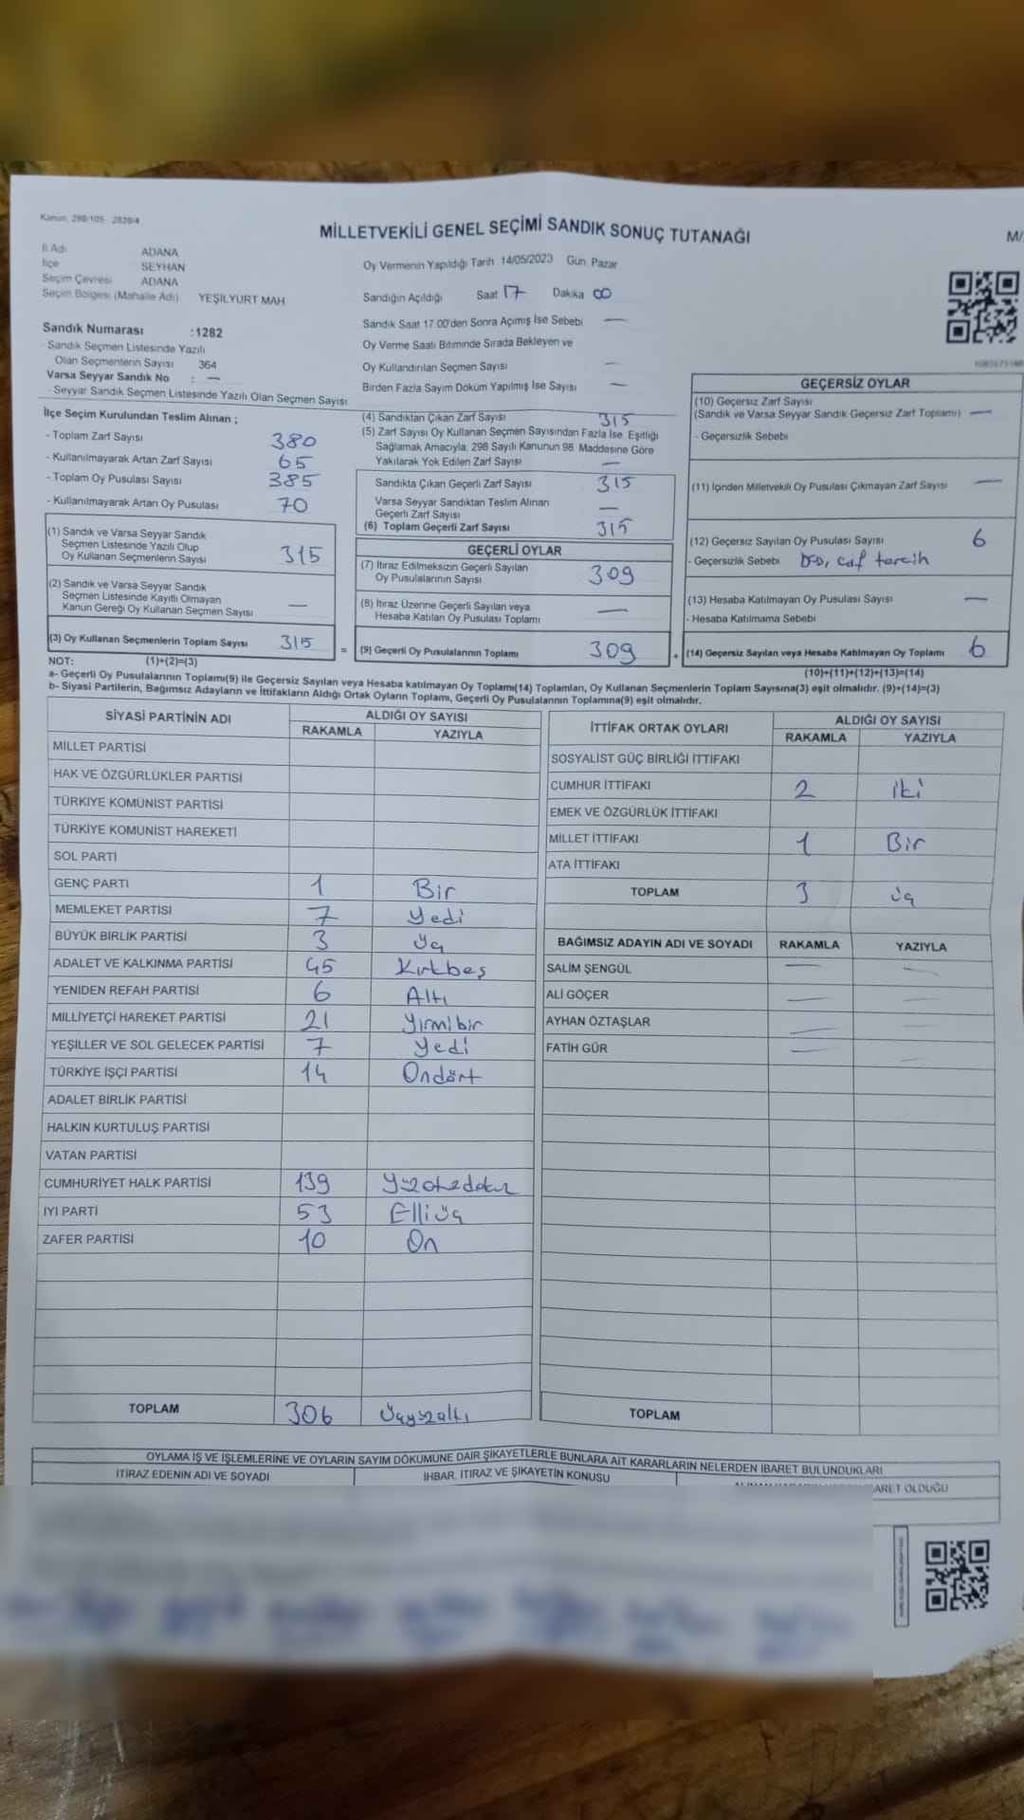 Kanun: 298/105 - 2839/4
MİLLETVEKİLİ GENEL SEÇİMİ SANDIK SONUÇ TUTANAĞI
M/
İl Adı ADANA
İlçe SEYHAN
Seçim Çevresi ADANA
Seçim Bölgesi (Mahalle Adı) YEŞİLYURT MAH
Oy Vermenin Yapıldığı Tarih 14/05/2023 Gün Pazar
Sandığın Açıldığı Saat 17 Dakika 00
Sandık Saat 17.00'den Sonra Açımış İse Sebebi —
Oy Verme Saati Bitiminde Sırada Bekleyen ve
Oy Kullandırılan Seçmen Sayısı —
Birden Fazla Sayım Döküm Yapılmış İse Sayısı —
Sandık Numarası :1282
- Sandık Seçmen Listesinde Yazılı
Olan Seçmenlerin Sayısı 364
Varsa Seyyar Sandık No : —
- Seyyar Sandık Seçmen Listesinde Yazılı Olan Seçmen Sayısı
İlçe Seçim Kurulundan Teslim Alınan ;
- Toplam Zarf Sayısı 380
- Kullanılmayarak Artan Zarf Sayısı 65
- Toplam Oy Pusulası Sayısı 385
- Kullanılmayarak Artan Oy Pusulası 70
(1) Sandık ve Varsa Seyyar Sandık
Seçmen Listesinde Yazılı Olup
Oy Kullanan Seçmenlerin Sayısı 315
(2) Sandık ve Varsa Seyyar Sandık
Seçmen Listesinde Kayıtlı Olmayan
Kanun Gereği Oy Kullanan Seçmen Sayısı —
(3) Oy Kullanan Seçmenlerin Toplam Sayısı 315
=
(4) Sandıktan Çıkan Zarf Sayısı 315
(5) Zarf Sayısı Oy Kullanan Seçmen Sayısından Fazla İse, Eşitliği
Sağlamak Amacıyla, 298 Sayılı Kanunun 98. Maddesine Göre
Yakılarak Yok Edilen Zarf Sayısı —
Sandıkta Çıkan Geçerli Zarf Sayısı 315
Varsa Seyyar Sandıktan Teslim Alınan
Geçerli Zarf Sayısı —
(6) Toplam Geçerli Zarf Sayısı 315
GEÇERLİ OYLAR
(7) İtiraz Edilmeksizin Geçerli Sayılan
Oy Pusulalarının Sayısı 309
(8) İtiraz Üzerine Geçerli Sayılan veya
Hesaba Katılan Oy Pusulası Toplamı —
(9) Geçerli Oy Pusulalarının Toplamı 309
+
GEÇERSİZ OYLAR
(10) Geçersiz Zarf Sayısı
(Sandık ve Varsa Seyyar Sandık Geçersiz Zarf Toplamı) —
- Geçersizlik Sebebi
(11) İçinden Milletvekili Oy Pusulası Çıkmayan Zarf Sayısı —
(12) Geçersiz Sayılan Oy Pusulası Sayısı 6
- Geçersizlik Sebebi tercih
(13) Hesaba Katılmayan Oy Pusulası Sayısı —
- Hesaba Katılmama Sebebi
(14) Geçersiz Sayılan veya Hesaba Katılmayan Oy Toplamı 6
NOT: (1)+(2)=(3)
(10)+(11)+(12)+(13)=(14)
a- Geçerli Oy Pusulalarının Toplamı(9) ile Geçersiz Sayılan veya Hesaba katılmayan Oy Toplamı(14) Toplamları, Oy Kullanan Seçmenlerin Toplam Sayısına(3) eşit olmalıdır. (9)+(14)=(3)
b- Siyasi Partilerin, Bağımsız Adayların ve İttifakların Aldığı Ortak Oyların Toplamı, Geçerli Oy Pusulalarının Toplamına(9) eşit olmalıdır.
SİYASİ PARTİNİN ADI ALDIĞI OY SAYISI
RAKAMLA YAZIYLA
MİLLET PARTİSİ
HAK VE ÖZGÜRLÜKLER PARTİSİ
TÜRKİYE KOMÜNİST PARTİSİ
TÜRKİYE KOMÜNİST HAREKETİ
SOL PARTİ
GENÇ PARTİ 1 Bir
MEMLEKET PARTİSİ 7 Yedi
BÜYÜK BİRLİK PARTİSİ 3 Üç
ADALET VE KALKINMA PARTİSİ 45 Kırkbeş
YENİDEN REFAH PARTİSİ 6 Altı
MİLLİYETÇİ HAREKET PARTİSİ 21 Yirmibir
YEŞİLLER VE SOL GELECEK PARTİSİ 7 Yedi
TÜRKİYE İŞÇİ PARTİSİ 14 Ondört
ADALET BİRLİK PARTİSİ
HALKIN KURTULUŞ PARTİSİ
VATAN PARTİSİ
CUMHURİYET HALK PARTİSİ 139 Yüzotuzdokuz
İYİ PARTİ 53 Elliüç
ZAFER PARTİSİ 10 On
TOPLAM 306 Üçyüzaltı
İTTİFAK ORTAK OYLARI ALDIĞI OY SAYISI
RAKAMLA YAZIYLA
SOSYALİST GÜÇ BİRLİĞİ İTTİFAKI
CUMHUR İTTİFAKI 2 iki
EMEK VE ÖZGÜRLÜK İTTİFAKI
MİLLET İTTİFAKI 1 Bir
ATA İTTİFAKI
TOPLAM 3 üç
BAĞIMSIZ ADAYIN ADI VE SOYADI RAKAMLA YAZIYLA
SALİM ŞENGÜL — —
ALİ GÖÇER — —
AYHAN ÖZTAŞLAR — —
FATİH GÜR — —
TOPLAM
OYLAMA İŞ VE İŞLEMLERİNE VE OYLARIN SAYIM DÖKÜMÜNE DAİR ŞİKAYETLERLE BUNLARA AİT KARARLARIN NELERDEN İBARET BULUNDUKLARI
İTİRAZ EDENİN ADI VE SOYADI İHBAR, İTİRAZ VE ŞİKAYETİN KONUSU
OLDUĞU